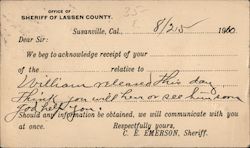 OFFICE OF
SHERIFF OF LASSEN COUNTY.
Susanville, Cal., 8/25 190
Dear Sir:
We beg to acknowledge receipt of your
of the relative to
William released this day
Think you will hear or see him soon
God help you!
Should any information be obtained, we will communicate with you
at once. Respectfully yours,
C. E. EMERSON, Sheriff.